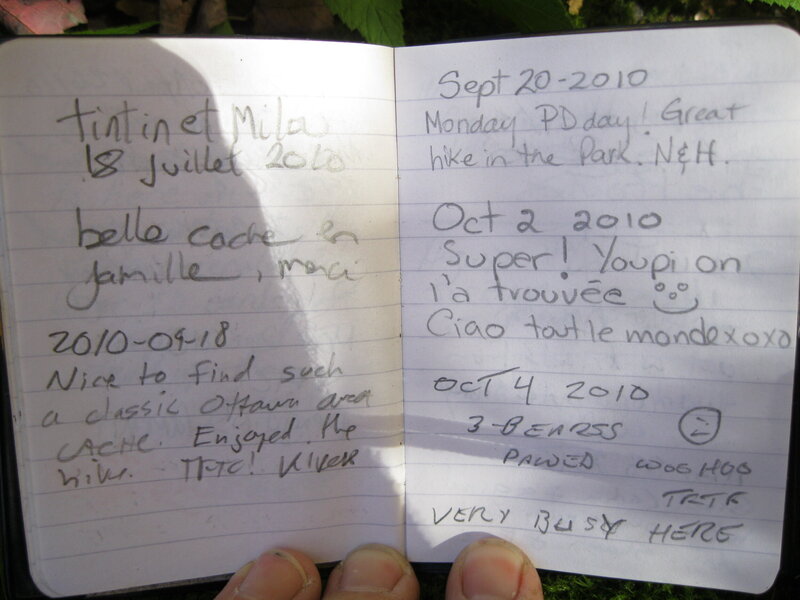 tintin et Milou
18 juillet 2010
belle cache en
famille, merci
2010-09-18
Nice to find such
a classic Ottawa area
CACHE. Enjoyed the
hike. TFTC!
Sept 20-2010
Monday PD day! Great
hike in the Park. N&H.
Oct 2 2010
Super! Youpi on
l'a trouvée
Ciao tout le monde xoxo
OCT 4 2010
3-BEARSS
PAWED WOOHOO
TFTF
VERY BUSY HERE